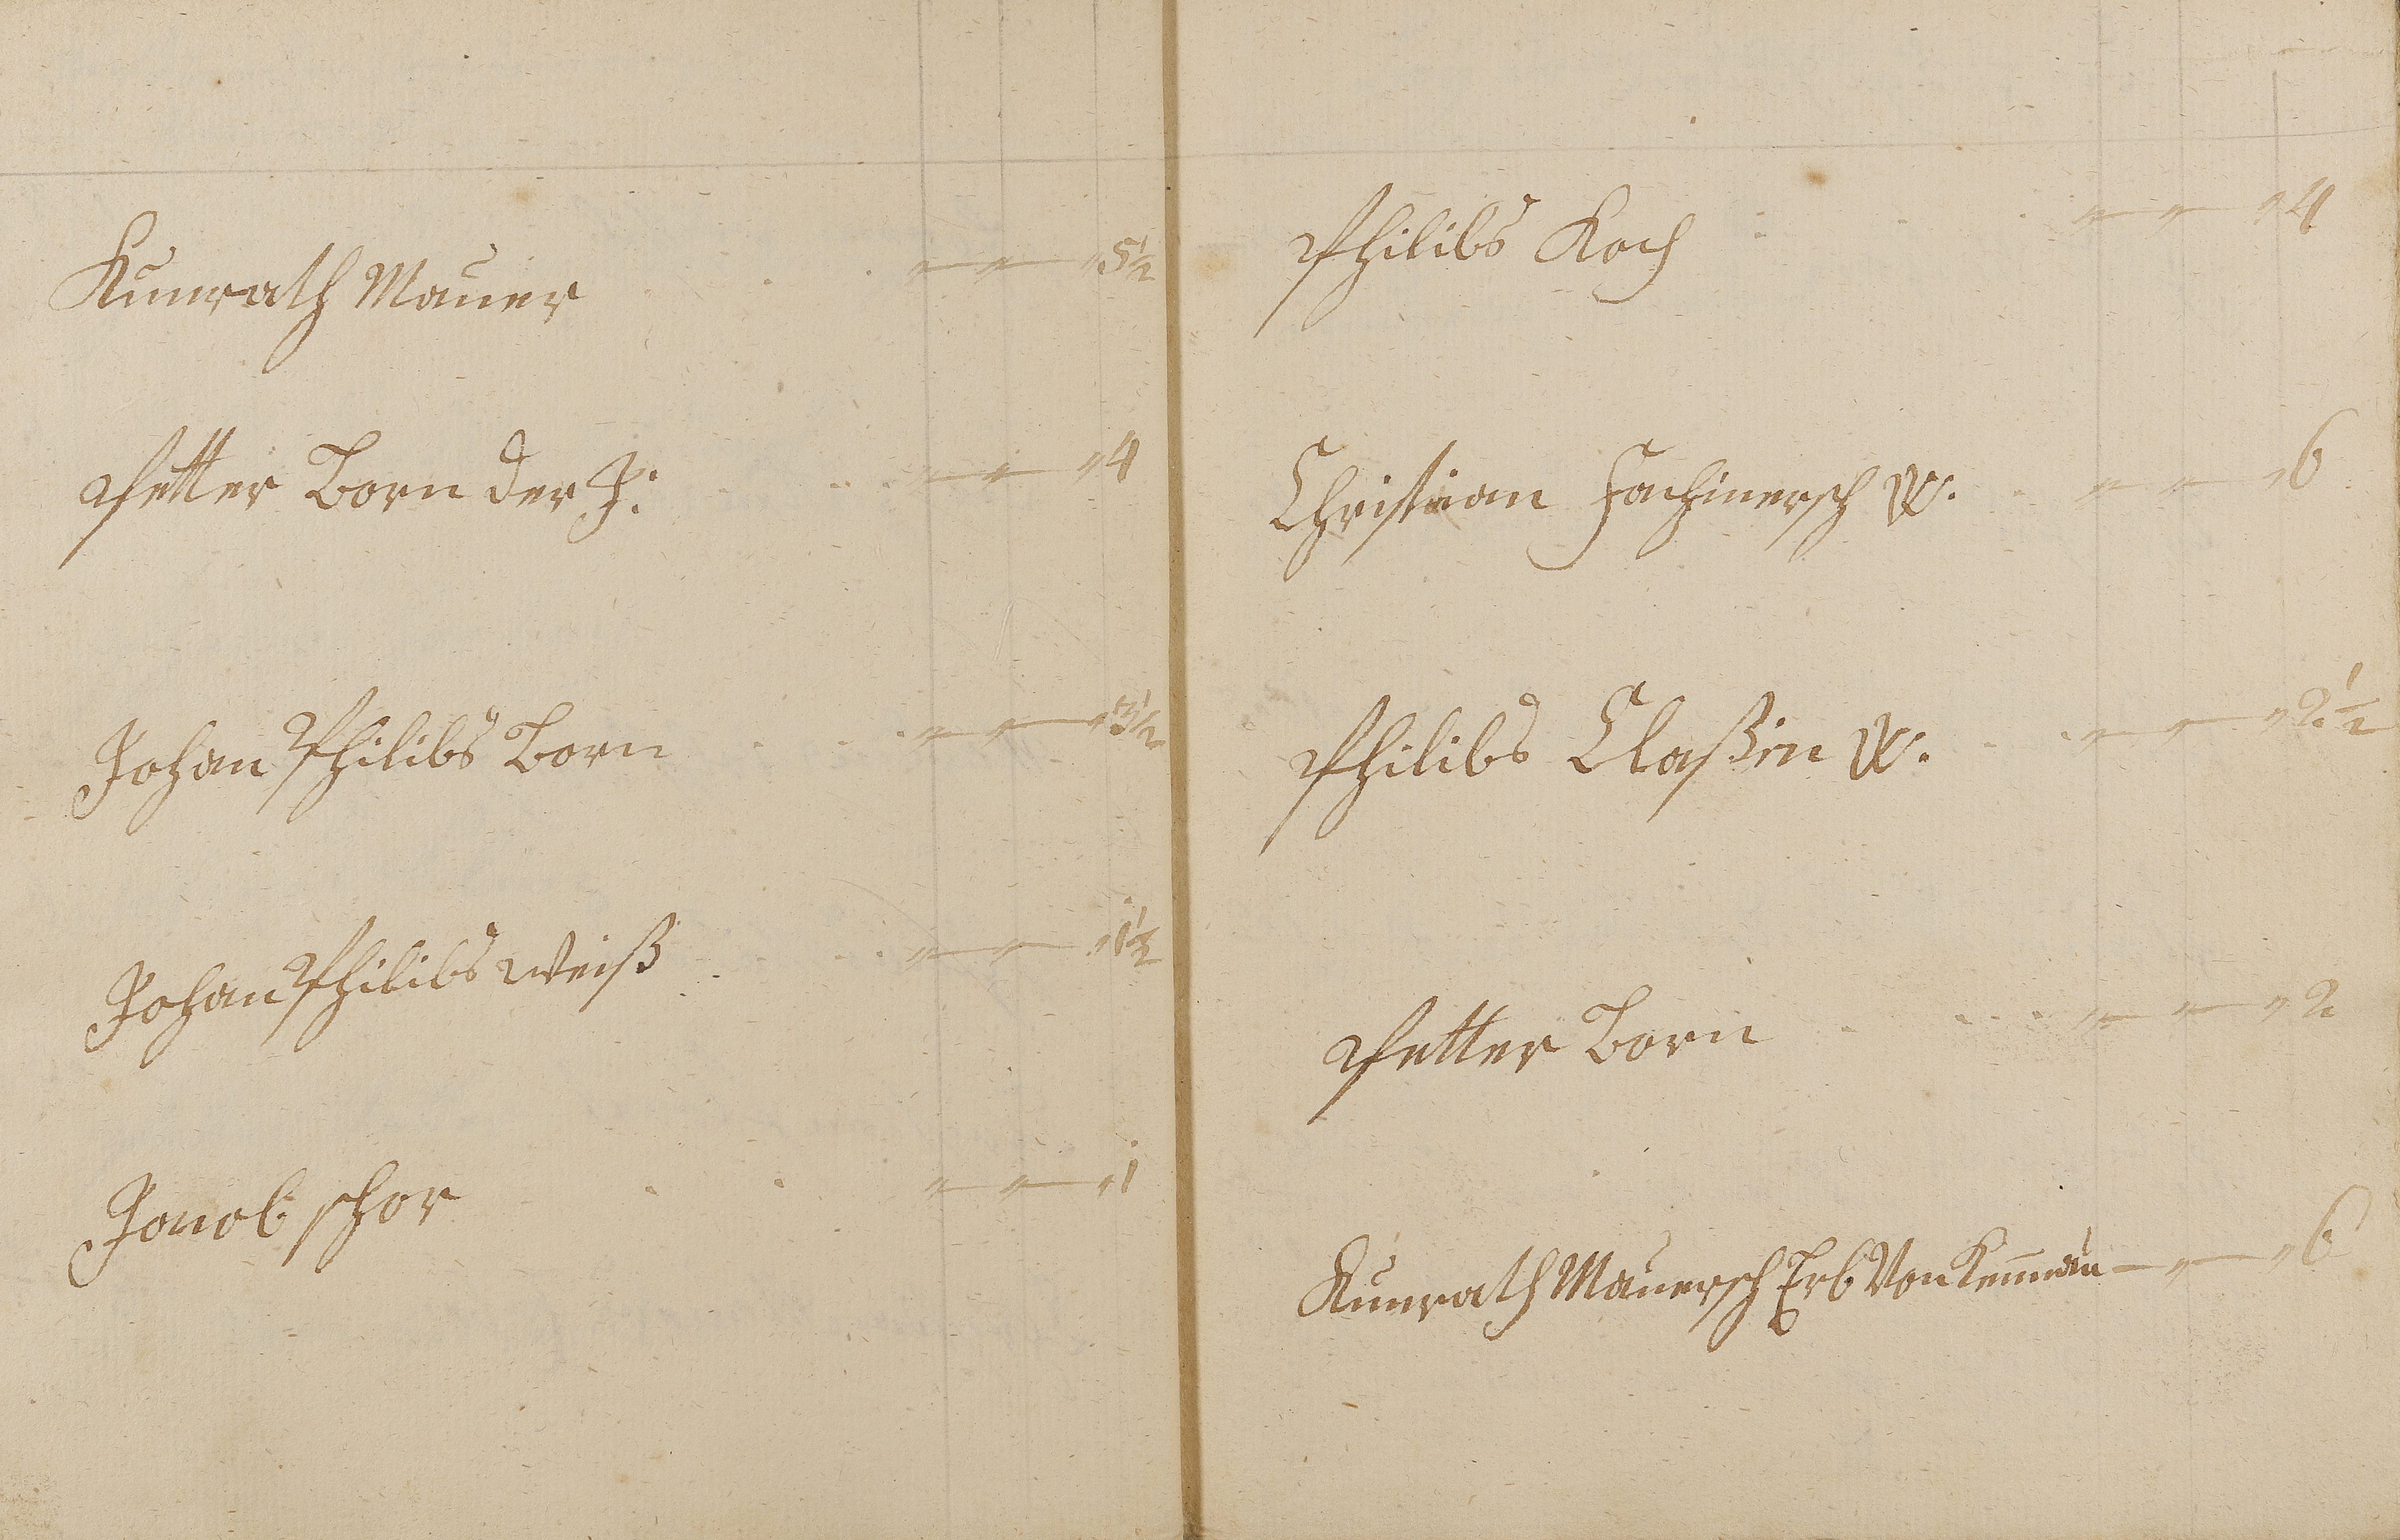 Kunrath Mauer . . . " — " — " 5 1/2
Petter Born der J: . . . " — " — " 4
Johan Philibs Born . . . " — " — " 3 1/2
Johan Philibs Weiß . . . . " — " — " 1 1/2
Jacob schor . . " — " — " 1
Philibs Koch . . . " — " — " 4
Christian Fachinersch W. . " — " — " 6
Philibs Claßin W. . . " — " — " 2 1/2
Petter Born . . . . " — " — " 2
Kunrath Mauersch Erb Von Kemmau — " — " 6